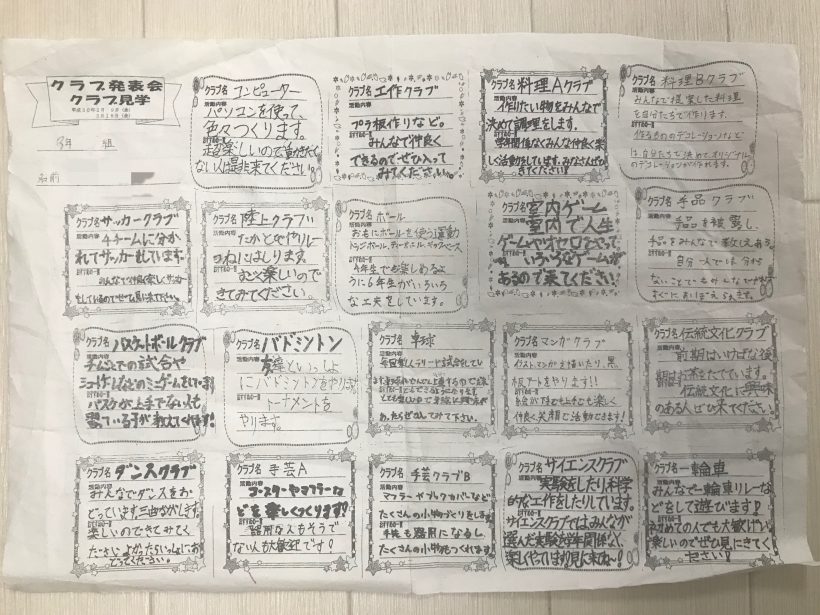 クラブ発表会
クラブ見学
3年 組
名前
クラブ名 コンピューター
活動内容
パソコンを使って、
色々つくります。
超楽しいので動かなく
ない人は是非来てください!
クラブ名 工作クラブ
活動内容
プラ板作りなど。
みんなで仲良く
できるのでぜひ入って
みてください。
クラブ名 料理Aクラブ
活動内容
作りたい物をみんなで
決めて調理をします。
学年関係なくみんな仲良く楽
しく活動をしています。みなさんぜひ
きてください!
クラブ名 料理Bクラブ
活動内容
みんなで提案した料理
を自分たちで作ります。
作るもののデコレーションなど
は自分たちで決めてオリジナル
のデコレーションが作れます。
クラブ名 サッカークラブ
活動内容
4チームに分か
れてサッカーをしています。
みんなで仲良く楽しくサッカー
をしているのでぜひ見に来て下さい。
クラブ名 陸上クラブ
活動内容
たかとびやリレー
つねにはしります。
むっちゃ楽しいので
きてみてください。
クラブ名 ボール
活動内容
おもにボールを使う運動
4年生でも楽しめるよ
うに6年生がいろいろ
な工夫をしています。
クラブ名 室内ゲーム
活動内容
室内で人生
ゲームやオセロをやって
いろいろなゲームが
あるので来てください!
クラブ名 手品クラブ
活動内容
手品を披露し、
手品をみんなで教えあう。
自分一人では分から
ないことでもみんなでやれば
すぐにおぼえられます。
クラブ名 バスケットボールクラブ
活動内容
チームごとの試合や
シュートゲームなどのミニゲームをしています!
バスケが上手でない人も
習っている子が教えてくれます!
クラブ名 バドミントン
活動内容
友達といっしょ
にバドミントンをやります
トーナメントを
やります。
クラブ名 卓球
活動内容
毎回楽しくラリーや試合をしてい
ます。
クラブ名 マンガクラブ
活動内容
イラストマンガを描いたり、黒
板アートをやります!!
仲良く笑顔で活動できます!
クラブ名 伝統文化クラブ
活動内容
前期はいけばな後
期はお茶をたてています。
伝統文化に興味
のある人ぜひ来てください。
クラブ名 ダンスクラブ
活動内容
みんなでダンスをお
どっています。三曲ながします。
楽しいのできてみてく
ださいよかったらいっしょにお
どってください。
クラブ名 手芸A
活動内容
コースターやマフラーな
どを楽しくつくります!
器用な人もそうで
ない人も大歓迎です!
クラブ名 手芸クラブB
活動内容
マフラーやブックカバーなど
たくさんの小物づくりをします。
手先も器用になるし、
たくさんの小物もつくれます!
クラブ名 サイエンスクラブ
活動内容
実験をしたり科学
的な工作をしたりしています。
サイエンスクラブではみんなが
選んだ実験を学年関係なく、
楽しくやっています!見に来てね〜!
クラブ名 一輪車
活動内容
みんなで一輪車リレーな
どをして遊びます♪
初めての人でも大歓迎!
楽しいのでぜひ見にきてく
ださい!